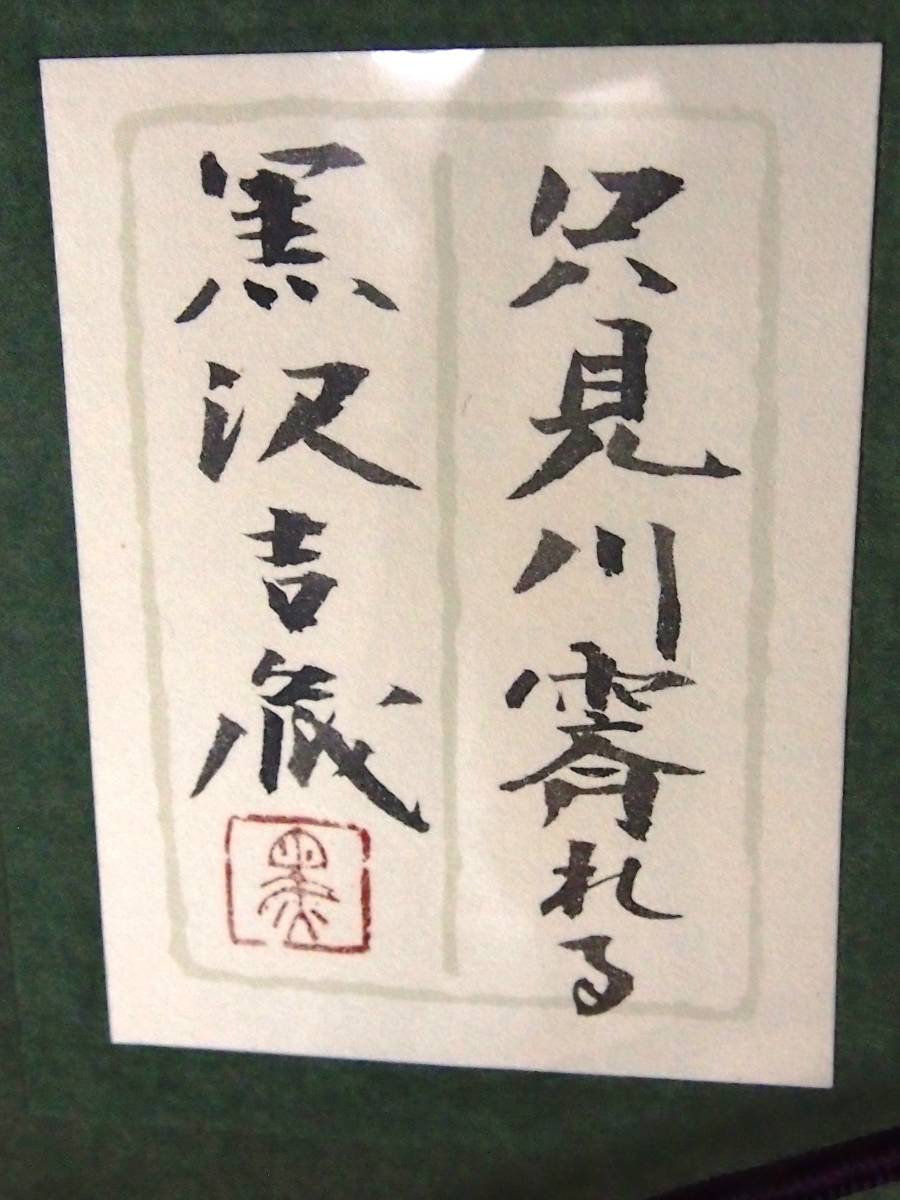 只見川霽れる
黒沢吉蔵
黒